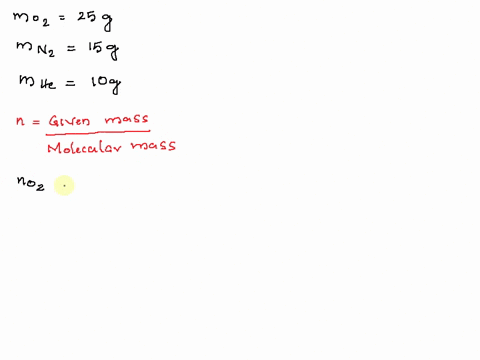 mO₂ = 25 g
mN₂ = 15 g
mHe = 10 g
n = Given mass
Molecular mass
nO₂